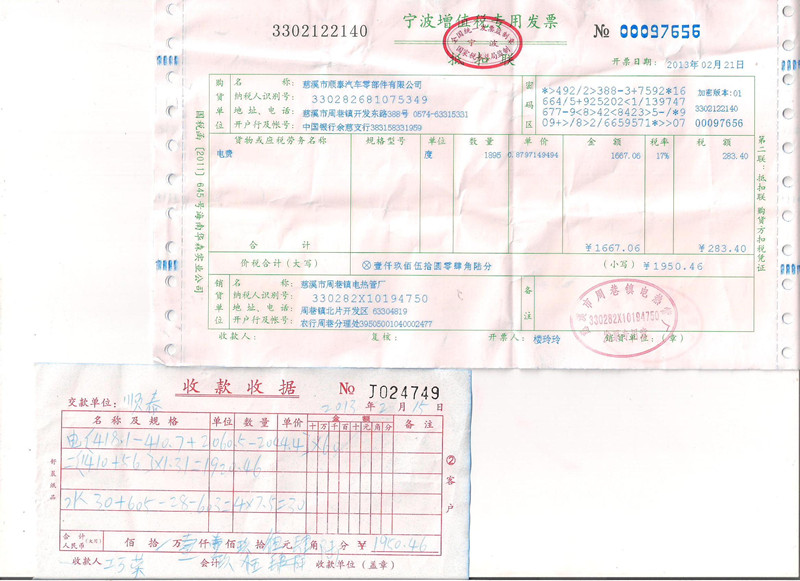 3302122140
宁波增值税专用发票
抵扣联
全国统一发票监制章
宁波
国家税务总局监制
№ 00097656
开票日期： 2013年02月21日
购货单位
名 称： 慈溪市顺泰汽车零部件有限公司
纳税人识别号： 330282681075349
地 址、电 话： 慈溪市周巷镇开发东路388号 0574-63315331
开户行及帐号： 中国银行余慈支行383158331959
密码区
*>492/2>388-3+7592*16
664/5+925202<1/139747
677-9<8>42<8423>5-/*9
09+>/8>2/6659571*>>07
加密版本：01
3302122140
00097656
货物或应税劳务名称 规格型号 单位 数 量 单 价 金 额 税率 税 额
电费 度 1895 0.8797149494 1667.06 17% 283.40
合 计 ￥1667.06 ￥283.40
价税合计（大写） ⊗壹仟玖佰伍拾圆零肆角陆分 （小写）￥1950.46
销货单位
名 称： 慈溪市周巷镇电热管厂
纳税人识别号： 330282X10194750
地 址、电 话： 周巷镇北片开发区 63304819
开户行及帐号： 农行周巷分理处39505001040002477
备注
330282X10194750
收款人： 复核： 开票人： 楼玲玲 销货单位：（章）
国税函〔2011〕645号海南华森实业公司
第二联：抵扣联 购货方扣税凭证
收款收据 № J024749
交款单位： 2013 年 2 月 15 日
名称及规格 单位 数量 单价 金额 备注
十万千百十元角分
电(418.1-410.7+2060.5-2044.4)×60
=(1410+56)×1.31=1920.46
水 30+605-28-603=4×7.5=30
合计人民币（大写） 佰 拾 万 仟 佰 拾 元 角 分 ￥ 1950.46
收款人 会计 收款单位（盖章）
②客户